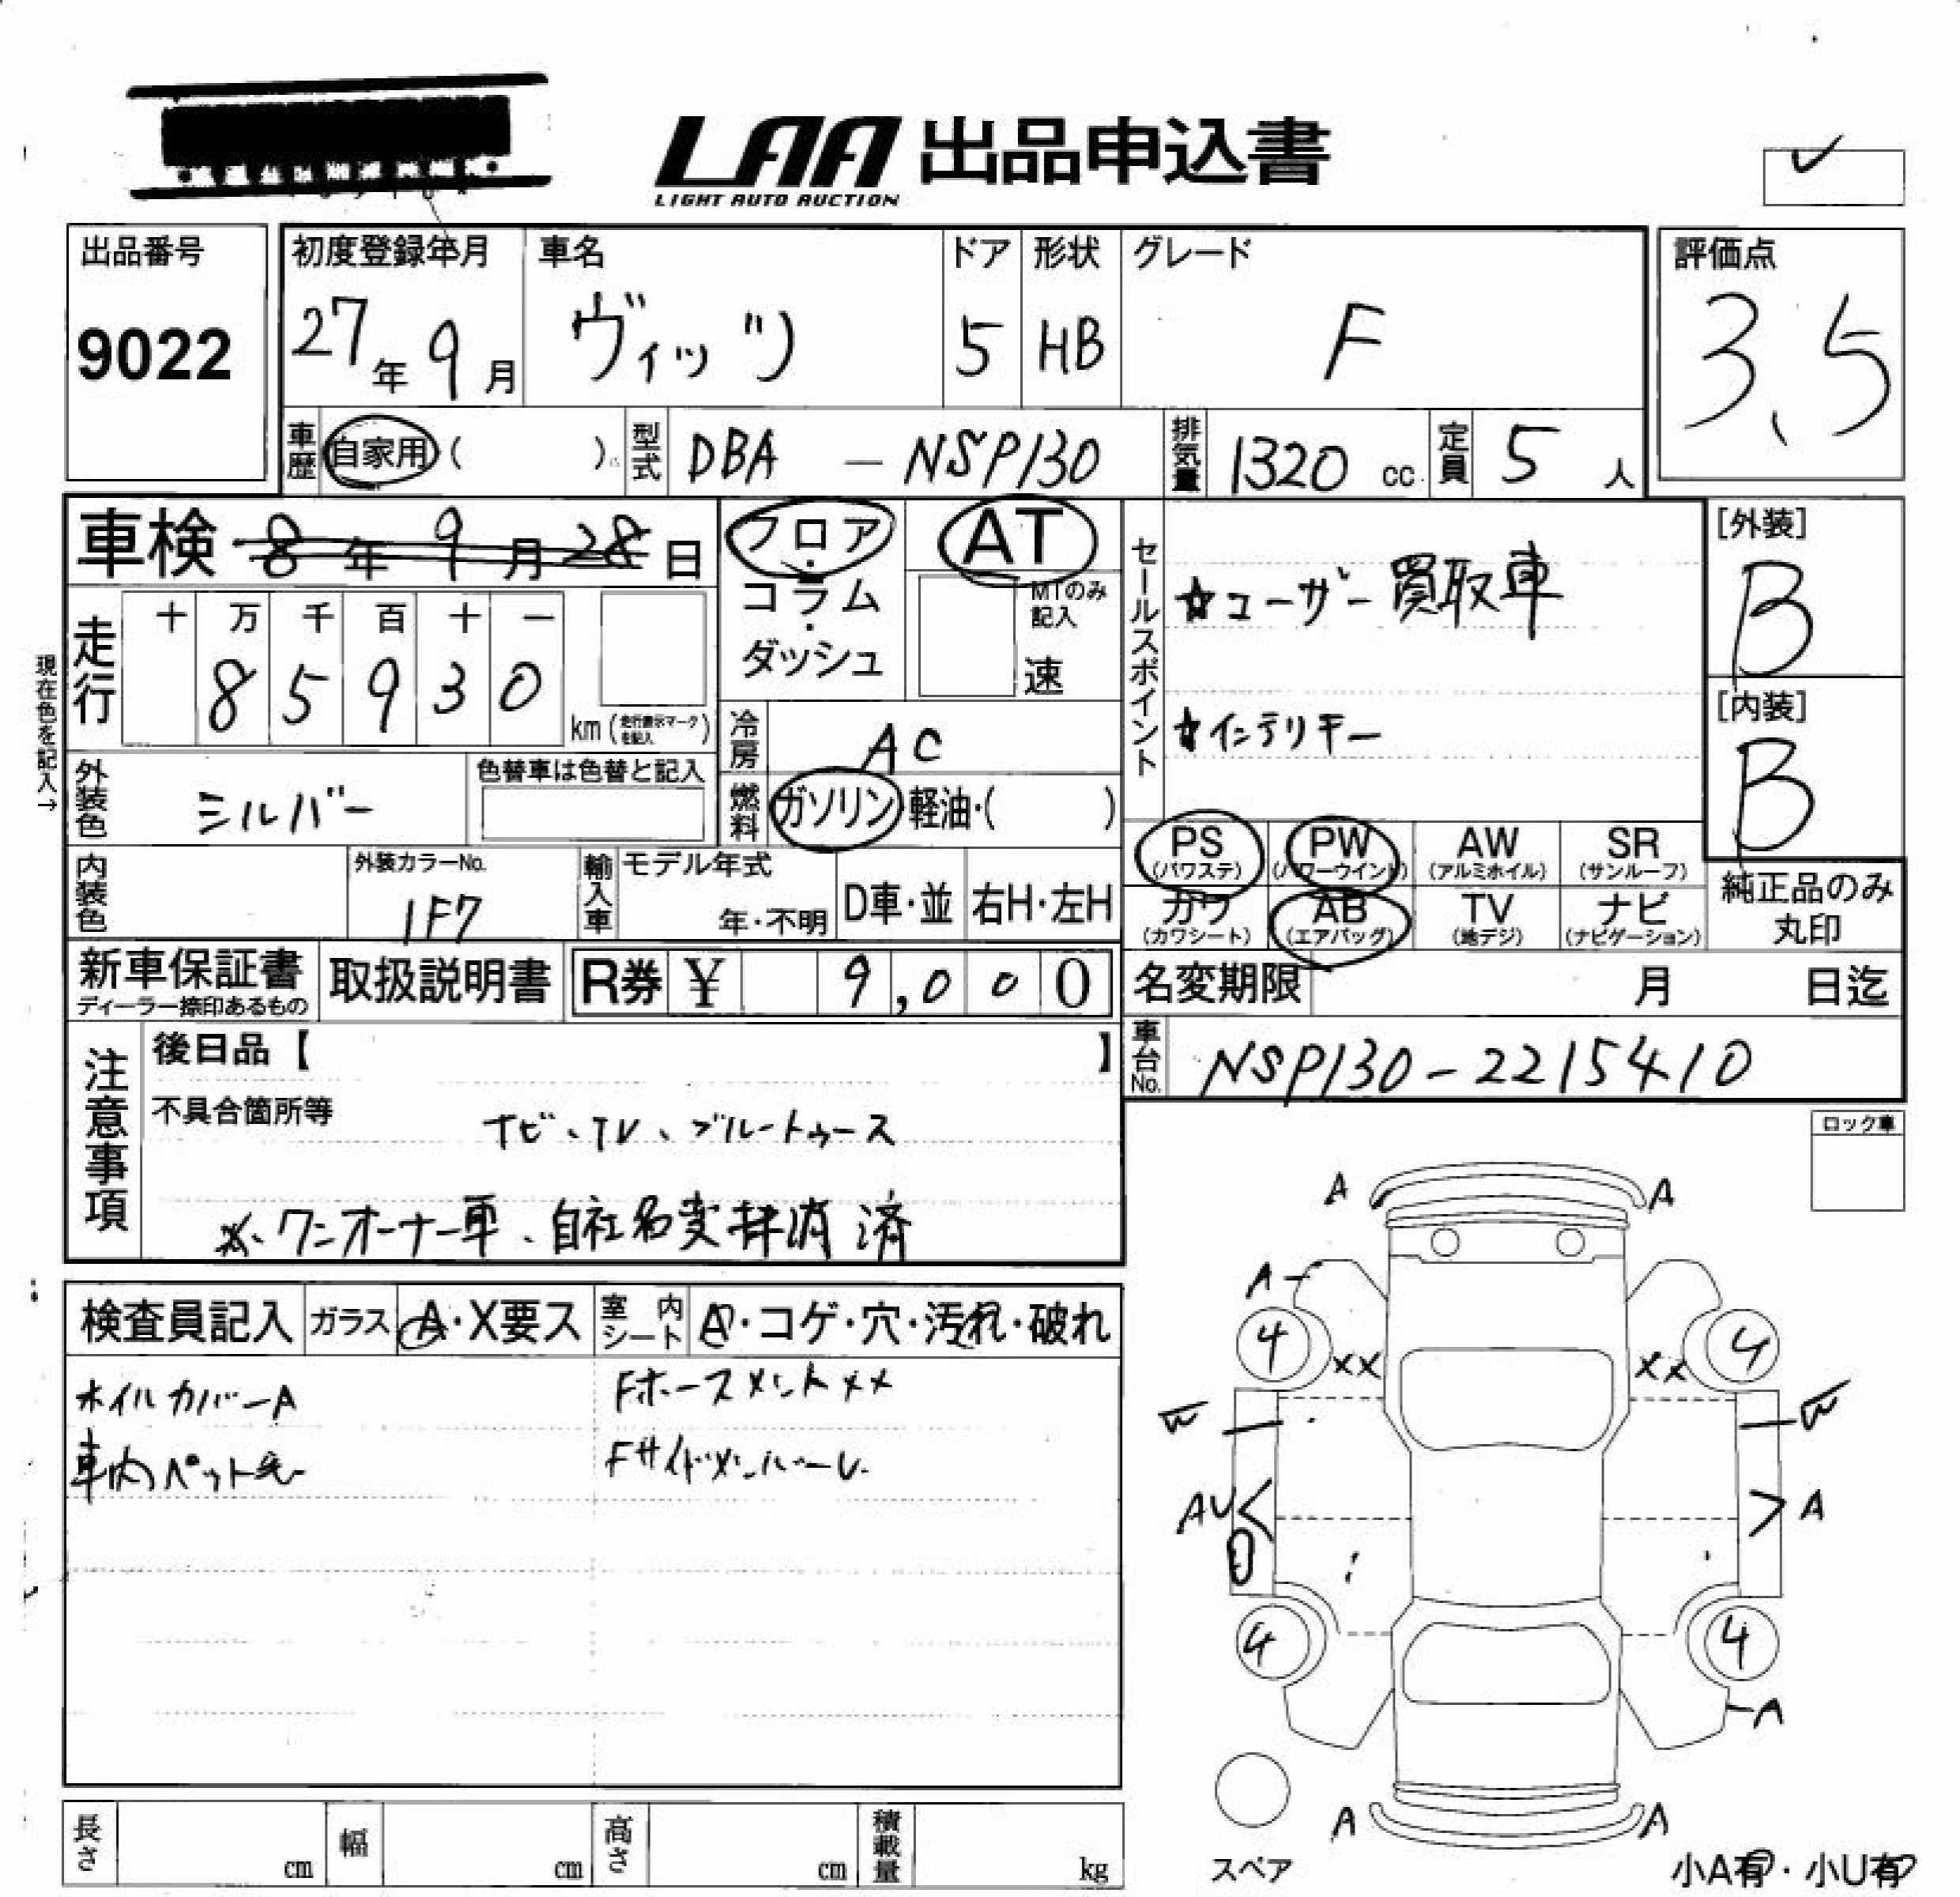 LAA 出品申込書
LIGHT AUTO AUCTION
出品番号
9022
初度登録年月
27年9月
車名
ヴィッツ
ドア
5
形状
HB
グレード
F
評価点
3.5
車歴 自家用( )
型式 DBA - NSP130
排気量 1320 cc
定員 5 人
車検 8年9月28日
フロア・コラム・ダッシュ
AT
MTのみ記入
速
セールスポイント
☆ユーザー買取車
☆インテリキー
[外装]
B
[内装]
B
現在色を記入→
走行
十 万 千 百 十 一
8 5 9 3 0
km(走行表示マークを記入)
冷房 AC
外装色 シルバー
色替車は色替と記入
燃料 ガソリン・軽油・( )
PS (パワステ)
PW (パワーウインド)
AW (アルミホイル)
SR (サンルーフ)
カワ (カワシート)
AB (エアバッグ)
TV (地デジ)
ナビ (ナビゲーション)
純正品のみ丸印
内装色
外装カラーNo.
1F7
輸入車
モデル年式
年・不明
D車・並
右H・左H
新車保証書
ディーラー捺印あるもの
取扱説明書
R券 ¥ 9,000
名変期限 月 日迄
車台No. NSP130-2215410
注意事項
後日品【 】
不具合箇所等
ナビ、TV、ブルートゥース
※、ワンオーナー車、自社名変抹消済
ロック車
検査員記入
ガラス A・X要ス
室内シート A・コゲ・穴・汚れ・破れ
ホイルカバーA
Fホースメント××
車内ペット毛
FサイドメンバーU
A A
A
4 4
×× ××
W W
AU A
4 4
A
A A
スペア
小A有・小U有
長さ cm
幅 cm
高さ cm
積載量 kg